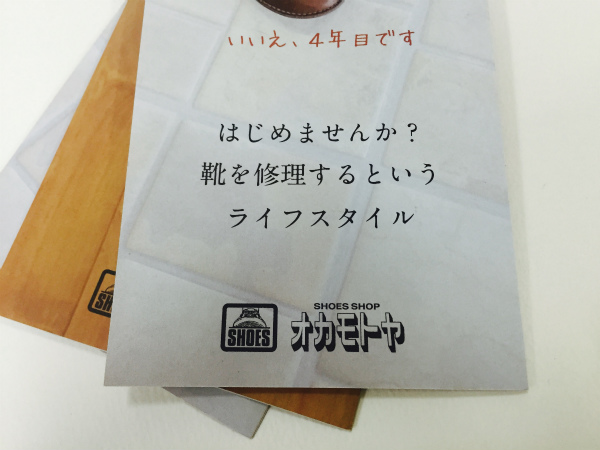 いいえ、4年目です
はじめませんか？
靴を修理するという
ライフスタイル
SHOES SHOP
SHOES オカモトヤ
SH